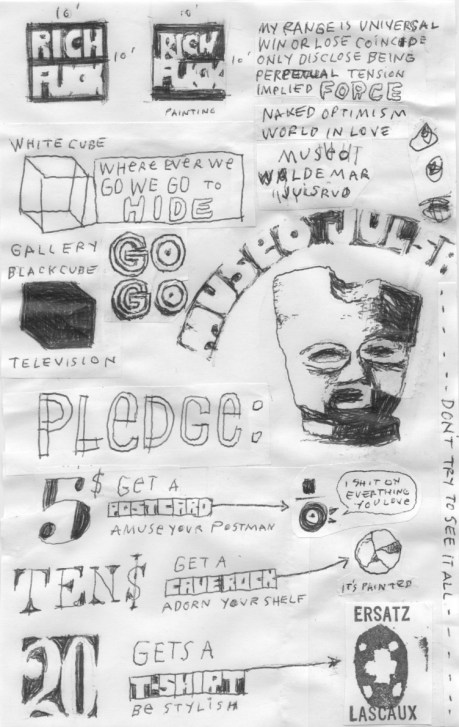 16'
16'
RICH
FUCK
10'
RICH
FUCK
10'
PAINTING
MY RANGE IS UNIVERSAL
WIN OR LOSE COINCIDE
ONLY DISCLOSE BEING
PERPETUAL TENSION
IMPLIED FORCE
NAKED OPTIMISM
WORLD IN LOVE
WALDEMAR
WHITE CUBE
WHERE EVER WE
GO WE GO TO
HIDE
GALLERY
BLACKCUBE
GO
GO
TELEVISION
PLEDGE:
5$ GET A
POSTCARD
AMUSE YOUR POSTMAN
I SHIT ON
EVERTHING
YOU LOVE
TEN$
GET A
CAVEROCK
ADORN YOUR SHELF
IT'S PAINTED
20
GETS A
T-SHIRT
BE STYLISH
ERSATZ
LASCAUX
DON'T TRY TO SEE IT ALL